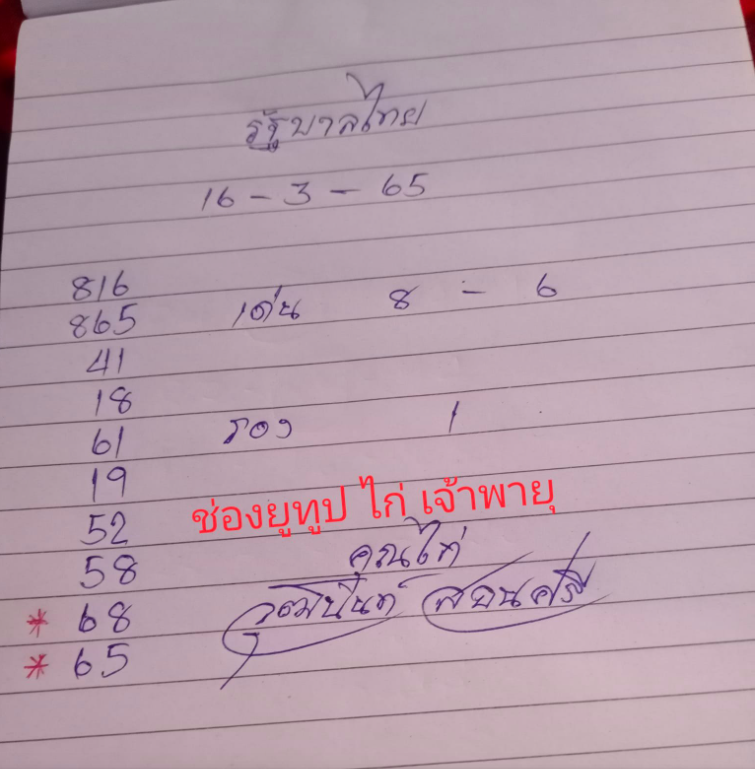 รัฐบาลไทย
16 - 3 - 65
816
865 เด่น 8 - 6
41
18
61 รอง 1
19
52 ช่องยูทูป ไก่ เจ้าพายุ
58 คุณไก่
* 68 วุฒินันท์ สอนศรี
* 65